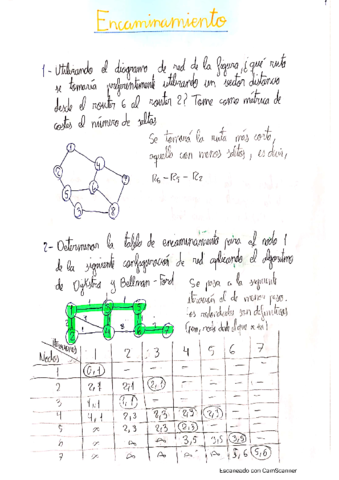 Encaminamiento
1- Utilizando el diagrama de red de la figura, ¿qué ruta
se tomaría preferentemente utilizando un vector distancia
desde el router 6 al router 2? Tome como métrica de
costes el número de saltos
Se tomará la ruta más corta,
aquella con menos saltos, es decir,
R6 - R5 - R2
2- Determinar la tabla de encaminamiento para el nodo 1
de la siguiente configuración de red aplicando el algoritmo
de Dijkstra y Bellman - Ford
Se pasa a la siguiente
iteración el de menor peso.
Nodos 1 2 3 4 5 6 7
1 (0,1) - - - - - -
2 2,1 2,1 (2,1) - - - -
3 1,1 (1,1) - - - - -
4 4,1 2,3 2,3 2,3 (2,3) - -
5 ∞ 2,3 2,3 (2,3) - - -
6 ∞ ∞ ∞ 3,5 3,5 (3,5) -
7 ∞ ∞ ∞ ∞ ∞ 5,6 (5,6)
Escaneado con CamScanner